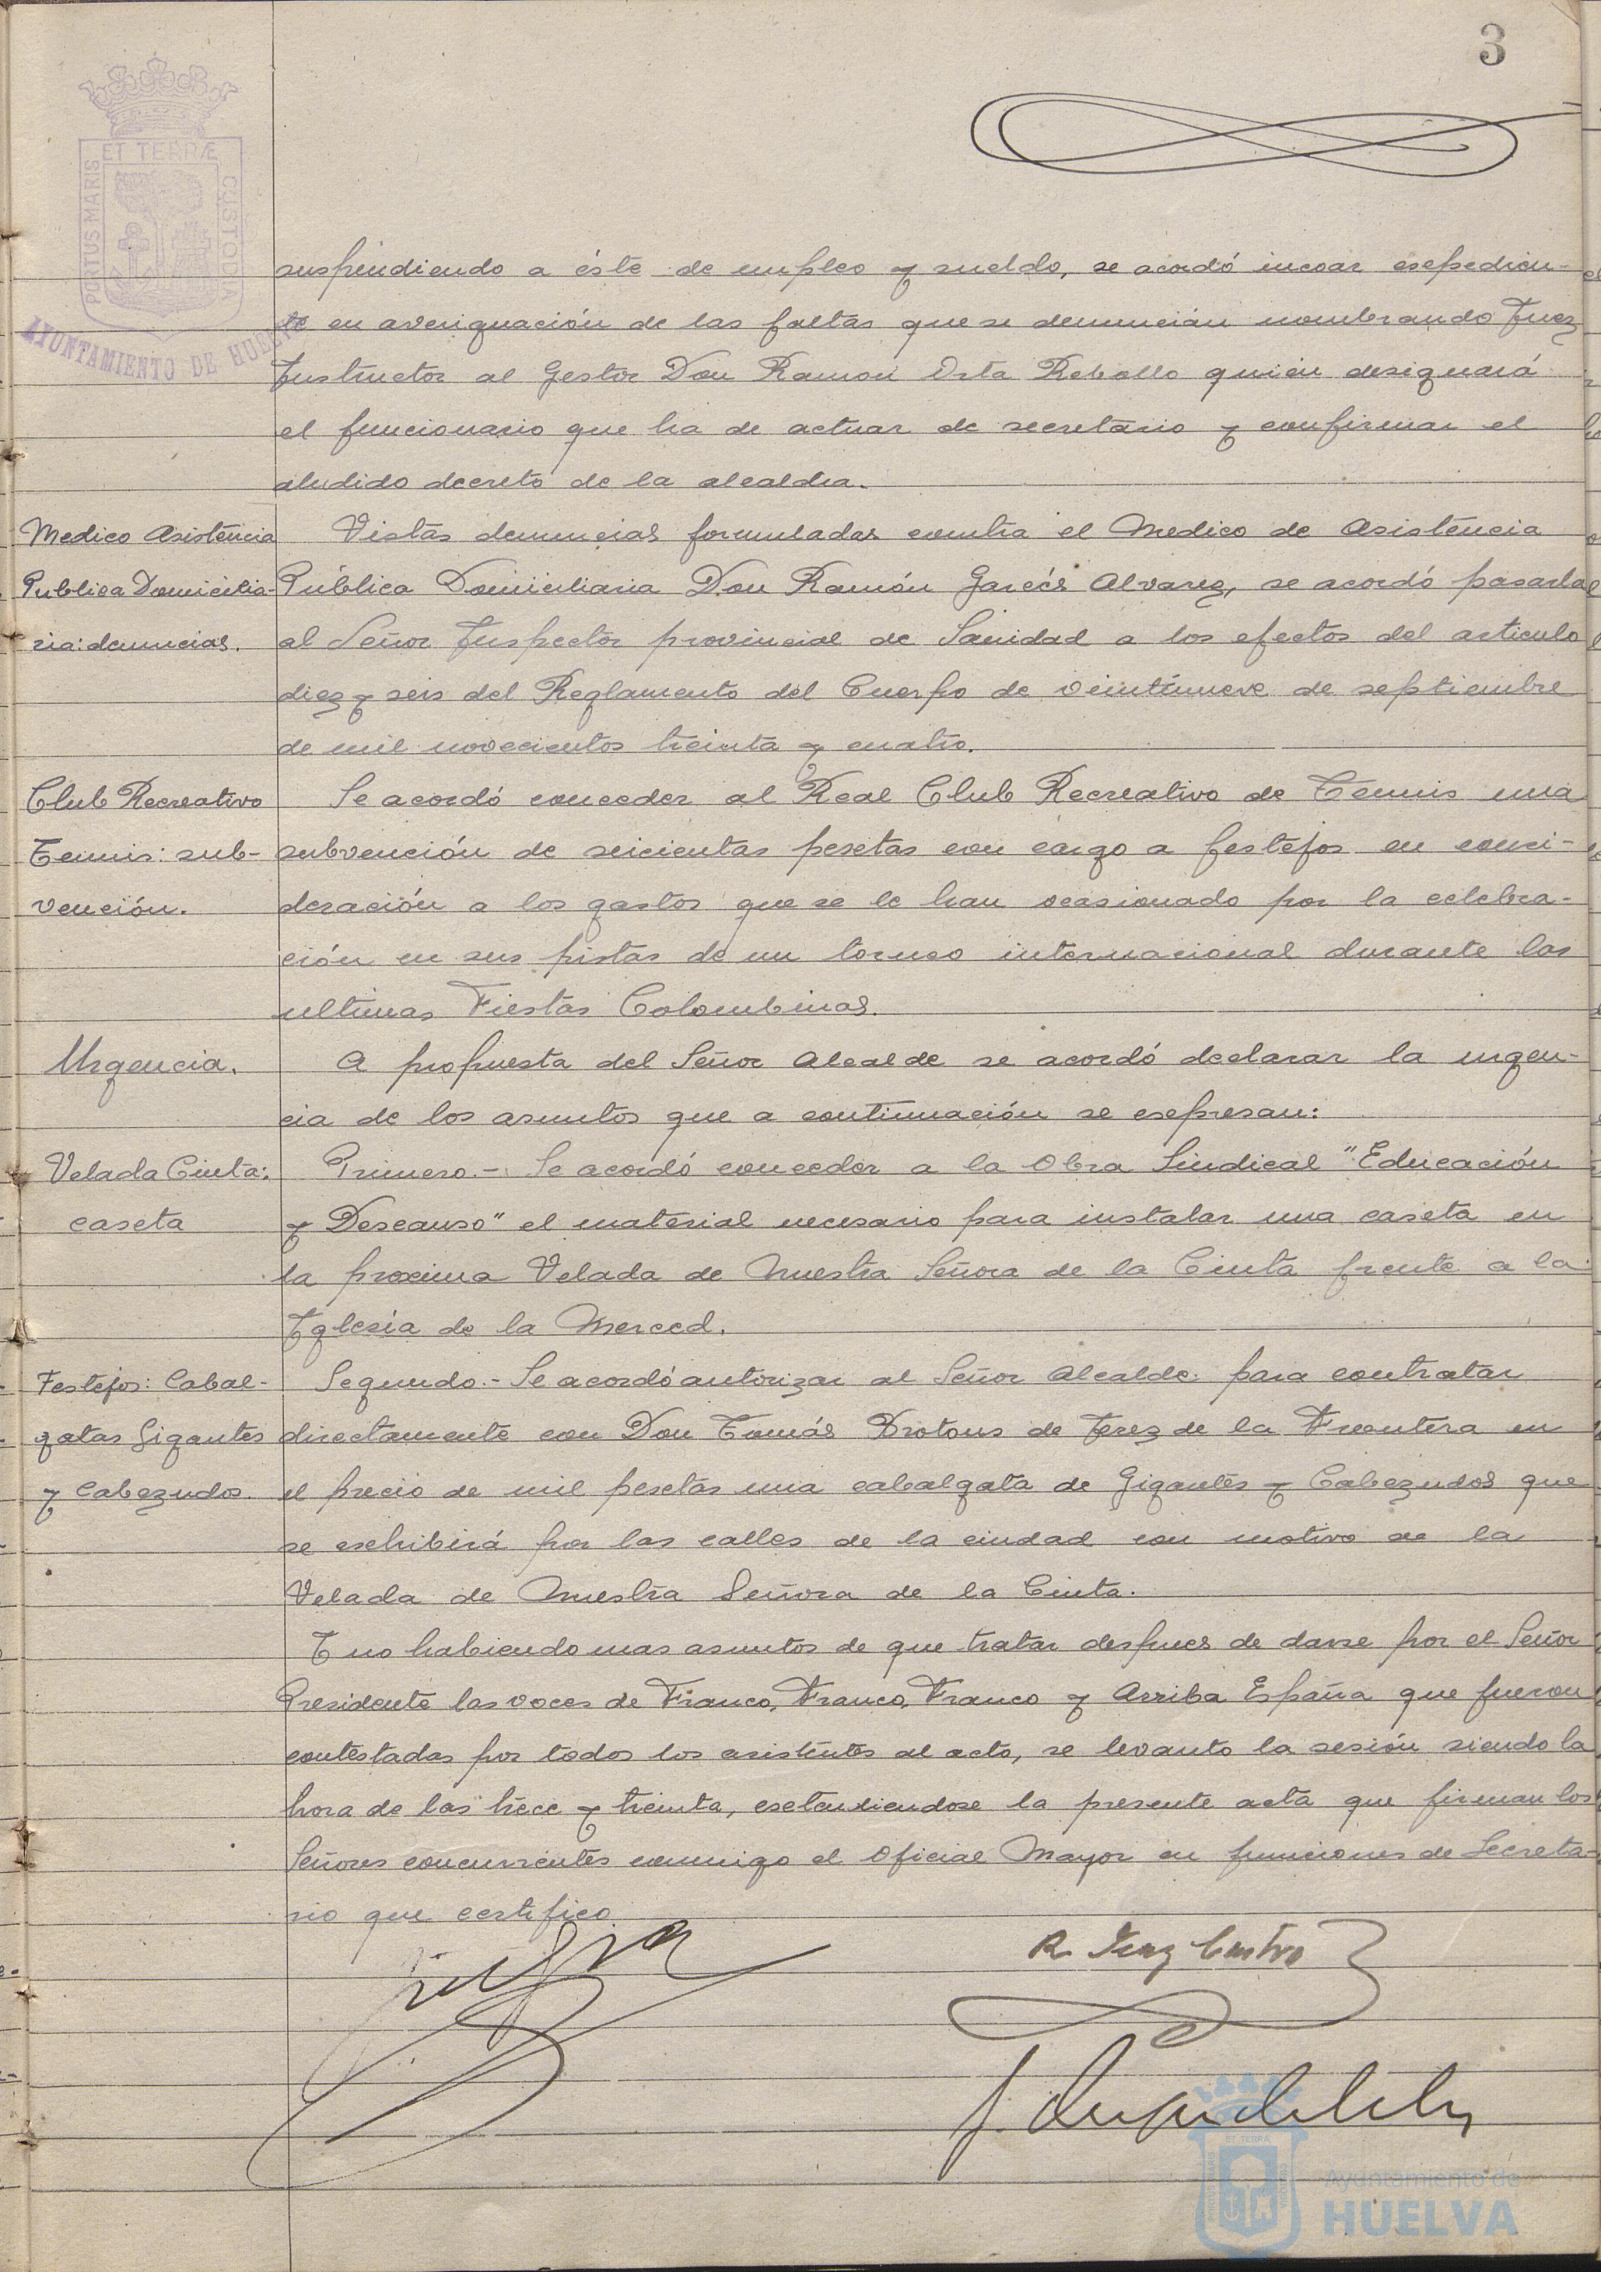 3
ET TERRÆ
PORTUS MARIS
CUSTODIA
AYUNTAMIENTO DE HUELVA
suspendiendo a éste de empleo y sueldo, se acordó incoar esepedien-
te en averiguación de las faltas que se denuncián nombrando Juez
Instructor al Gestor Don Ramon Orta Rebollo quién designará
el funcionario que ha de actuar de secretario y confirmar el
aludido decreto de la alcaldia.
Medico Asistencia
Publica Domicilia-
ria: denuncias.
Vistas denuncias formuladas contra el Medico de Asistencia
Pública Domiciliaria Don Ramón Garcés Alvarez, se acordó pasarla
al Señor Inspector provincial de Sanidad a los efectos del articulo
diez y seis del Reglamento del Cuerpo de veintinueve de septiembre
de mil novecientos treinta y cuatro.
Club Recreativo
Tennis: sub-
vención.
Se acordó conceder al Real Club Recreativo de Tennis una
subvención de seicientas pesetas con cargo a festejos en consi-
deración a los gastos que se le han ocasionado por la celebra-
ción en sus pistas de un torneo internacional durante las
ultimas Fiestas Colombinas.
Urgencia.
A propuesta del Señor Alcalde se acordó declarar la urgen-
cia de los asuntos que a continuación se esepresan:
Velada Cinta:
caseta
Primero.- Se acordó conceder a la Obra Sindical "Educación
y Descanso" el material necesario para instalar una caseta en
la proxima Velada de Nuestra Señora de la Cinta frente a la
Iglesia de la Merced.
Festejos: Cabal-
gatas Gigantes
y Cabezudos.
Segundo.- Se acordó autorizar al Señor Alcalde para contratar
directamente con Don Tomás Brotons de Jerez de la Frontera en
el precio de mil pesetas una cabalgata de Gigantes y Cabezudos que
se eschibirá por las calles de la ciudad con motivo de la
Velada de Nuestra Señora de la Cinta.
Y no habiendo mas asuntos de que tratar despues de darse por el Señor
Presidente las voces de Franco, Franco, Franco y Arriba España que fueron
contestadas por todos los asistentes al acto, se levanto la sesión siendo la
hora de las trece y treinta, esetendiendose la presente acta que firman los
Señores concurrentes conmigo el Oficial Mayor en funciones de Secreta-
rio que certifico
R. Castro
Ayuntamiento de
HUELVA